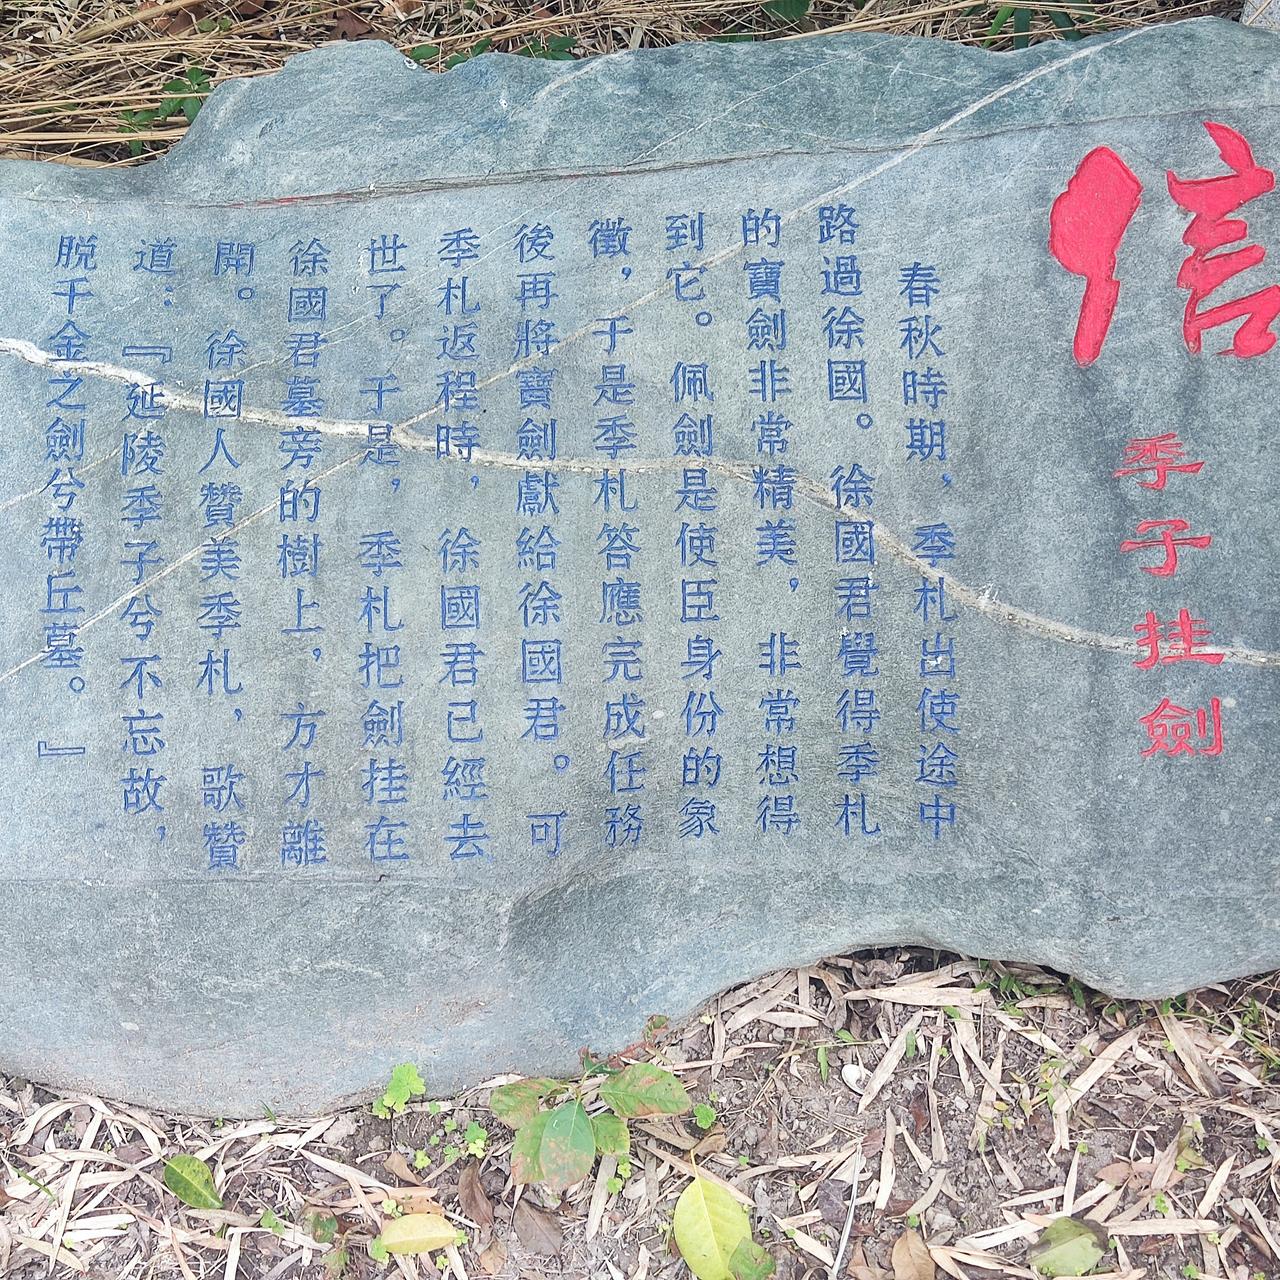 信
季子挂劍
春秋時期，季札出使途中
路過徐國。徐國君覺得季札
的寶劍非常精美，非常想得
到它。佩劍是使臣身份的象
徵，于是季札答應完成任務
後再將寶劍獻給徐國君。可
季札返程時，徐國君已經去
世了。于是，季札把劍挂在
徐國君墓旁的樹上，方才離
開。徐國人贊美季札，歌贊
道：『延陵季子兮不忘故，
脱千金之劍兮帶丘墓。』